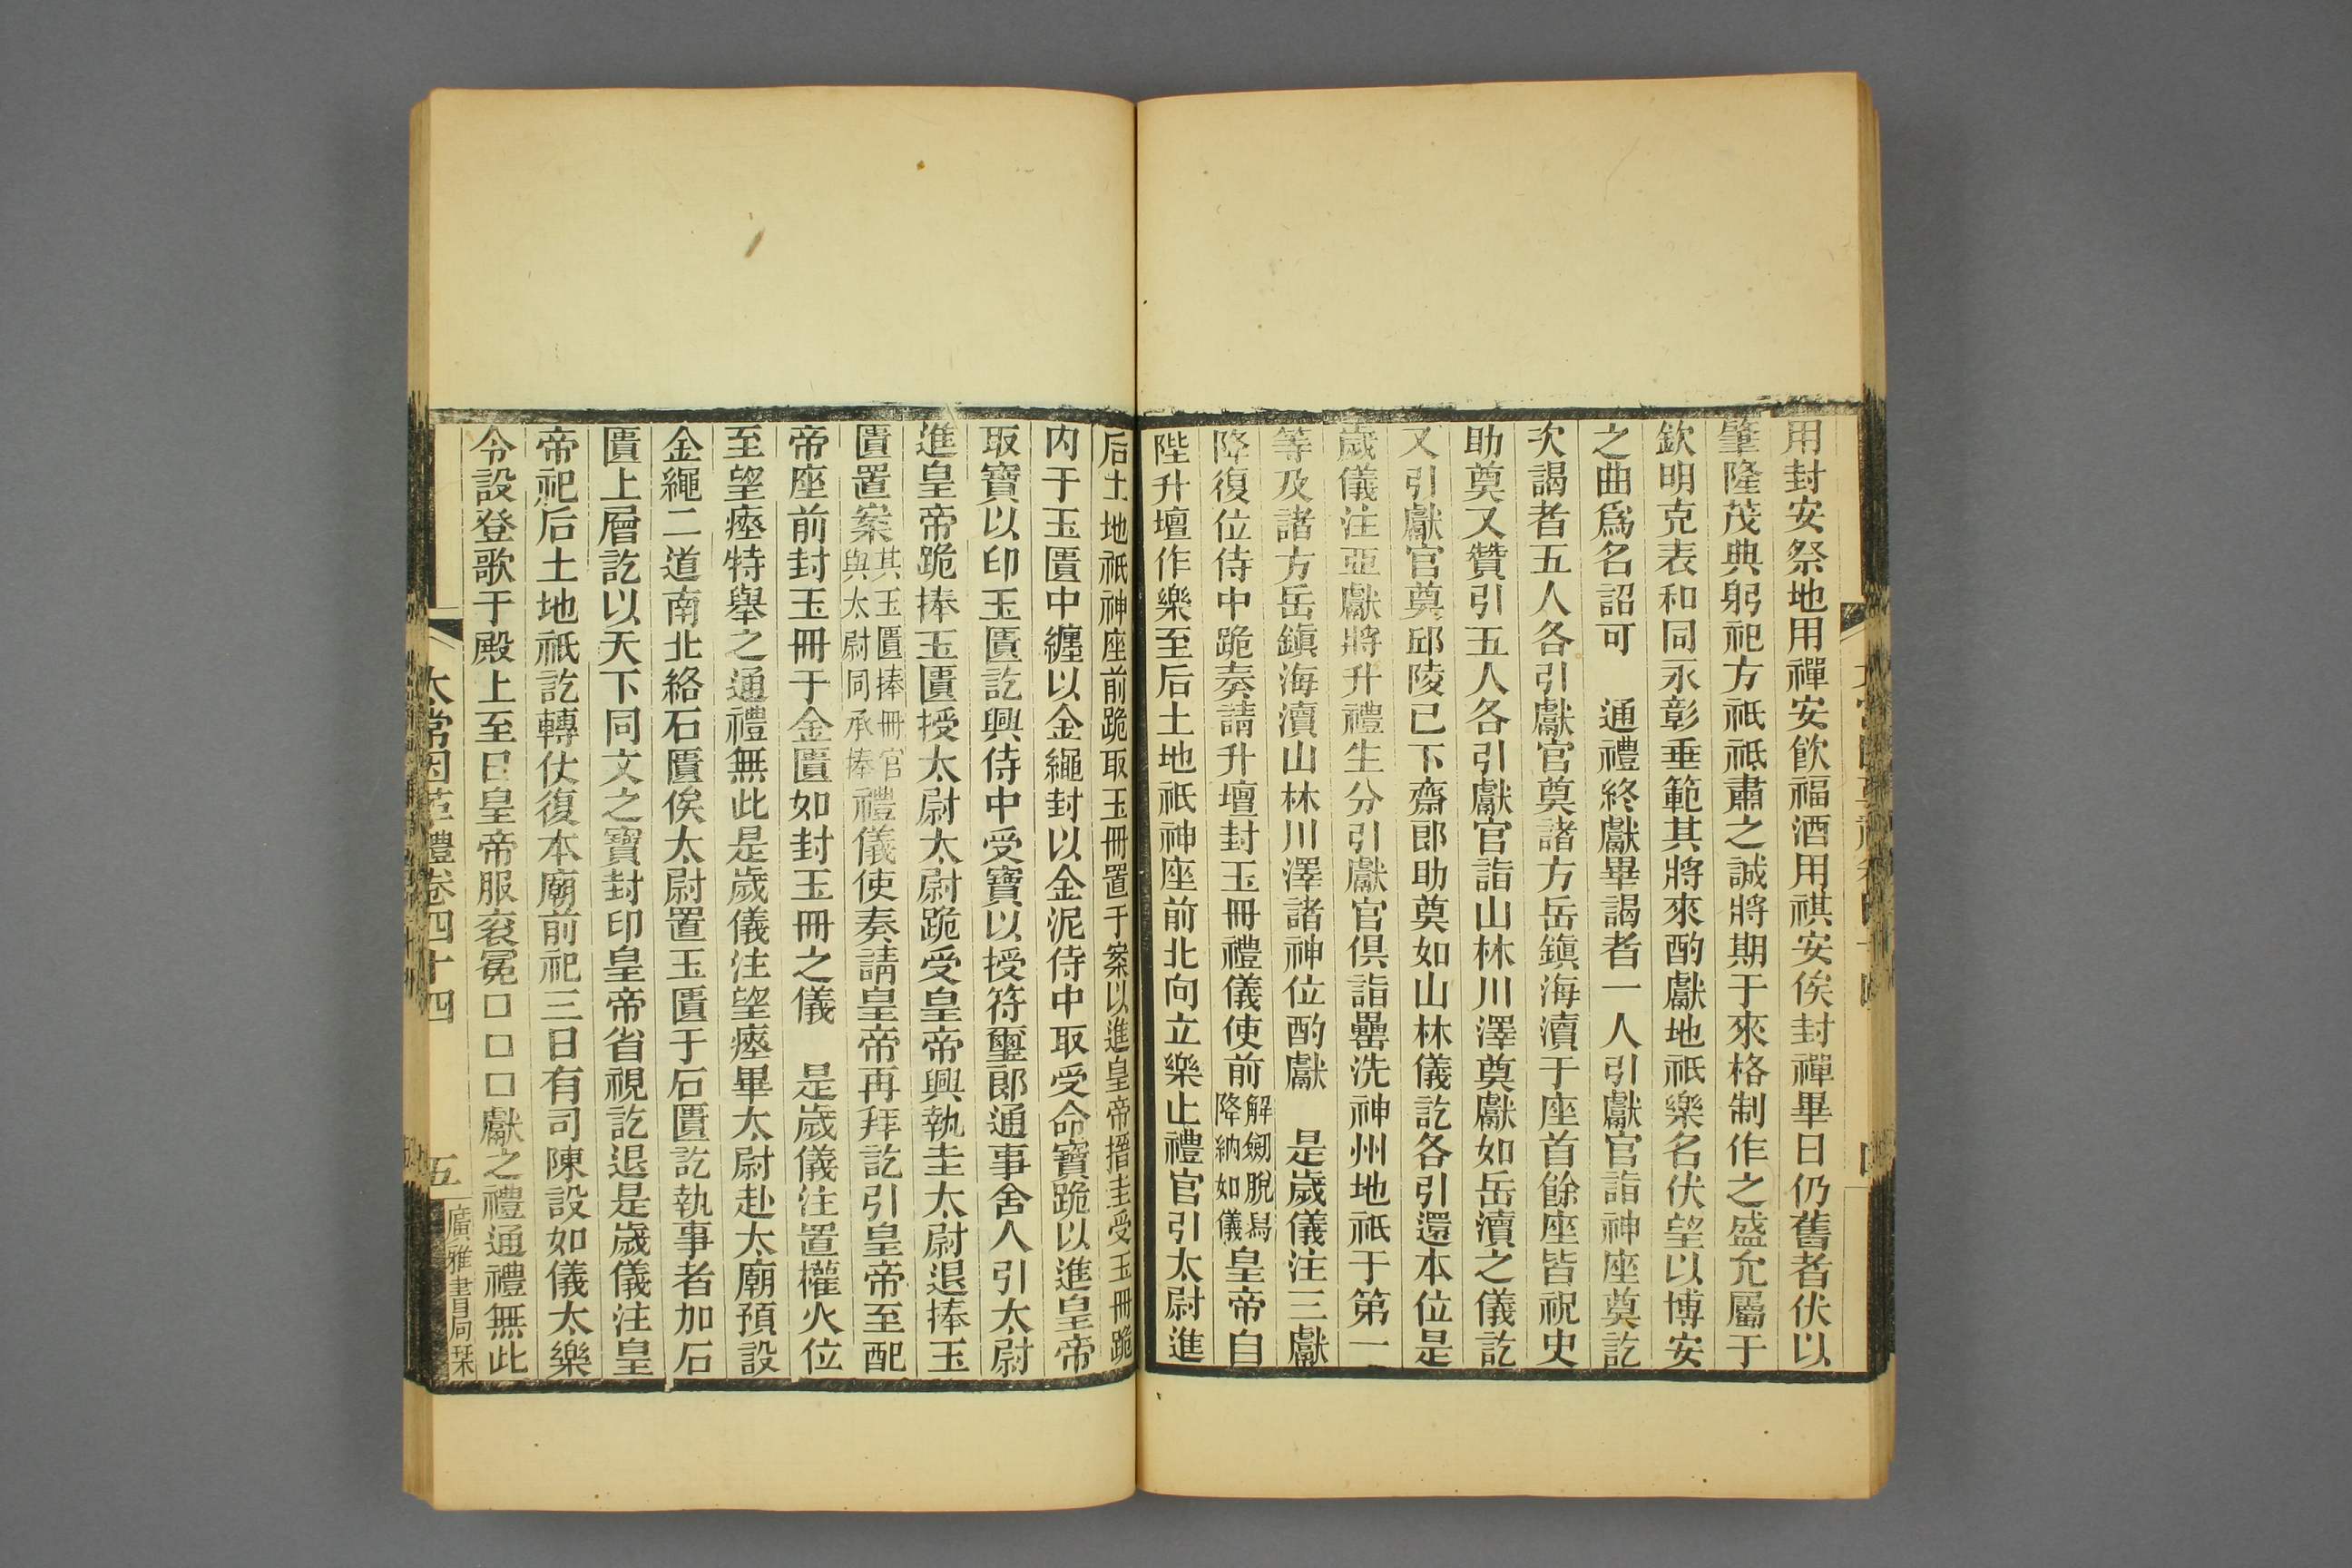 用封安祭地用禪安飮福酒用祺安俟封禪畢日仍舊者伏以
肇隆茂典躬祀方祇祗肅之誠將期于來格制作之盛允屬于
欽明克表和同永彰垂範其將來酌獻地祇樂名伏望以博安
之曲爲名詔可　通禮終獻畢謁者一人引獻官詣神座奠訖
次謁者五人各引獻官奠諸方岳鎭海瀆于座首餘座皆祝史
助奠又贊引五人各引獻官詣山林川澤奠獻如岳瀆之儀訖
又引獻官奠邱陵已下齋郎助奠如山林儀訖各引還本位是
歲儀注亞獻將升禮生分引獻官俱詣罍洗神州地祇于第一
等及諸方岳鎭海瀆山林川澤諸神位酌獻　是歲儀注三獻
降復位侍中跪奏請升壇封玉冊禮儀使前解劒脫舄降納如儀皇帝自
陛升壇作樂至后土地祇神座前北向立樂止禮官引太尉進
后土地祇神座前跪取玉冊置于案以進皇帝搢圭受玉冊跪
内于玉匱中纏以金繩封以金泥侍中取受命寶跪以進皇帝
取寶以印玉匱訖興侍中受寶以授符璽郎通事舍人引太尉
進皇帝跪捧玉匱授太尉太尉跪受皇帝興執圭太尉退捧玉
匱置案其玉匱捧冊官與太尉同承捧禮儀使奏請皇帝再拜訖引皇帝至配
帝座前封玉冊于金匱如封玉冊之儀　是歲儀注置權火位
至望瘞特舉之通禮無此是歲儀注望瘞畢太尉赴太廟預設
金繩二道南北絡石匱俟太尉置玉匱于石匱訖執事者加石
匱上層訖以天下同文之寶封印皇帝省視訖退是歲儀注皇
帝祀后土地祇訖轉仗復本廟前祀三日有司陳設如儀太樂
令設登歌于殿上至日皇帝服衮冕□□□獻之禮通禮無此
太常因革禮卷四十四
五
廣雅書局栞